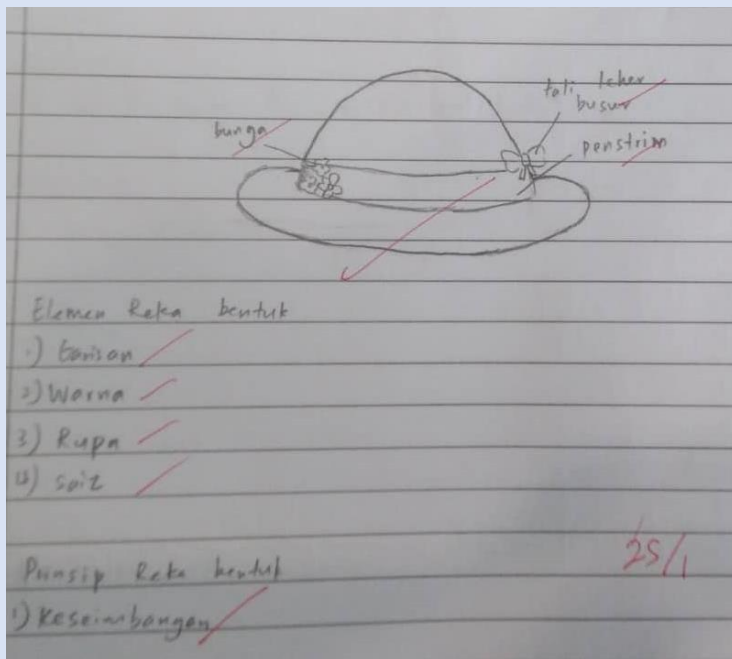 tali leher
busur
bunga
penstrim
Elemen Reka bentuk
1.) Garisan
2) Warna
3) Rupa
4) saiz
25/1
Prinsip Reka bentuk
1) Keseimbangan